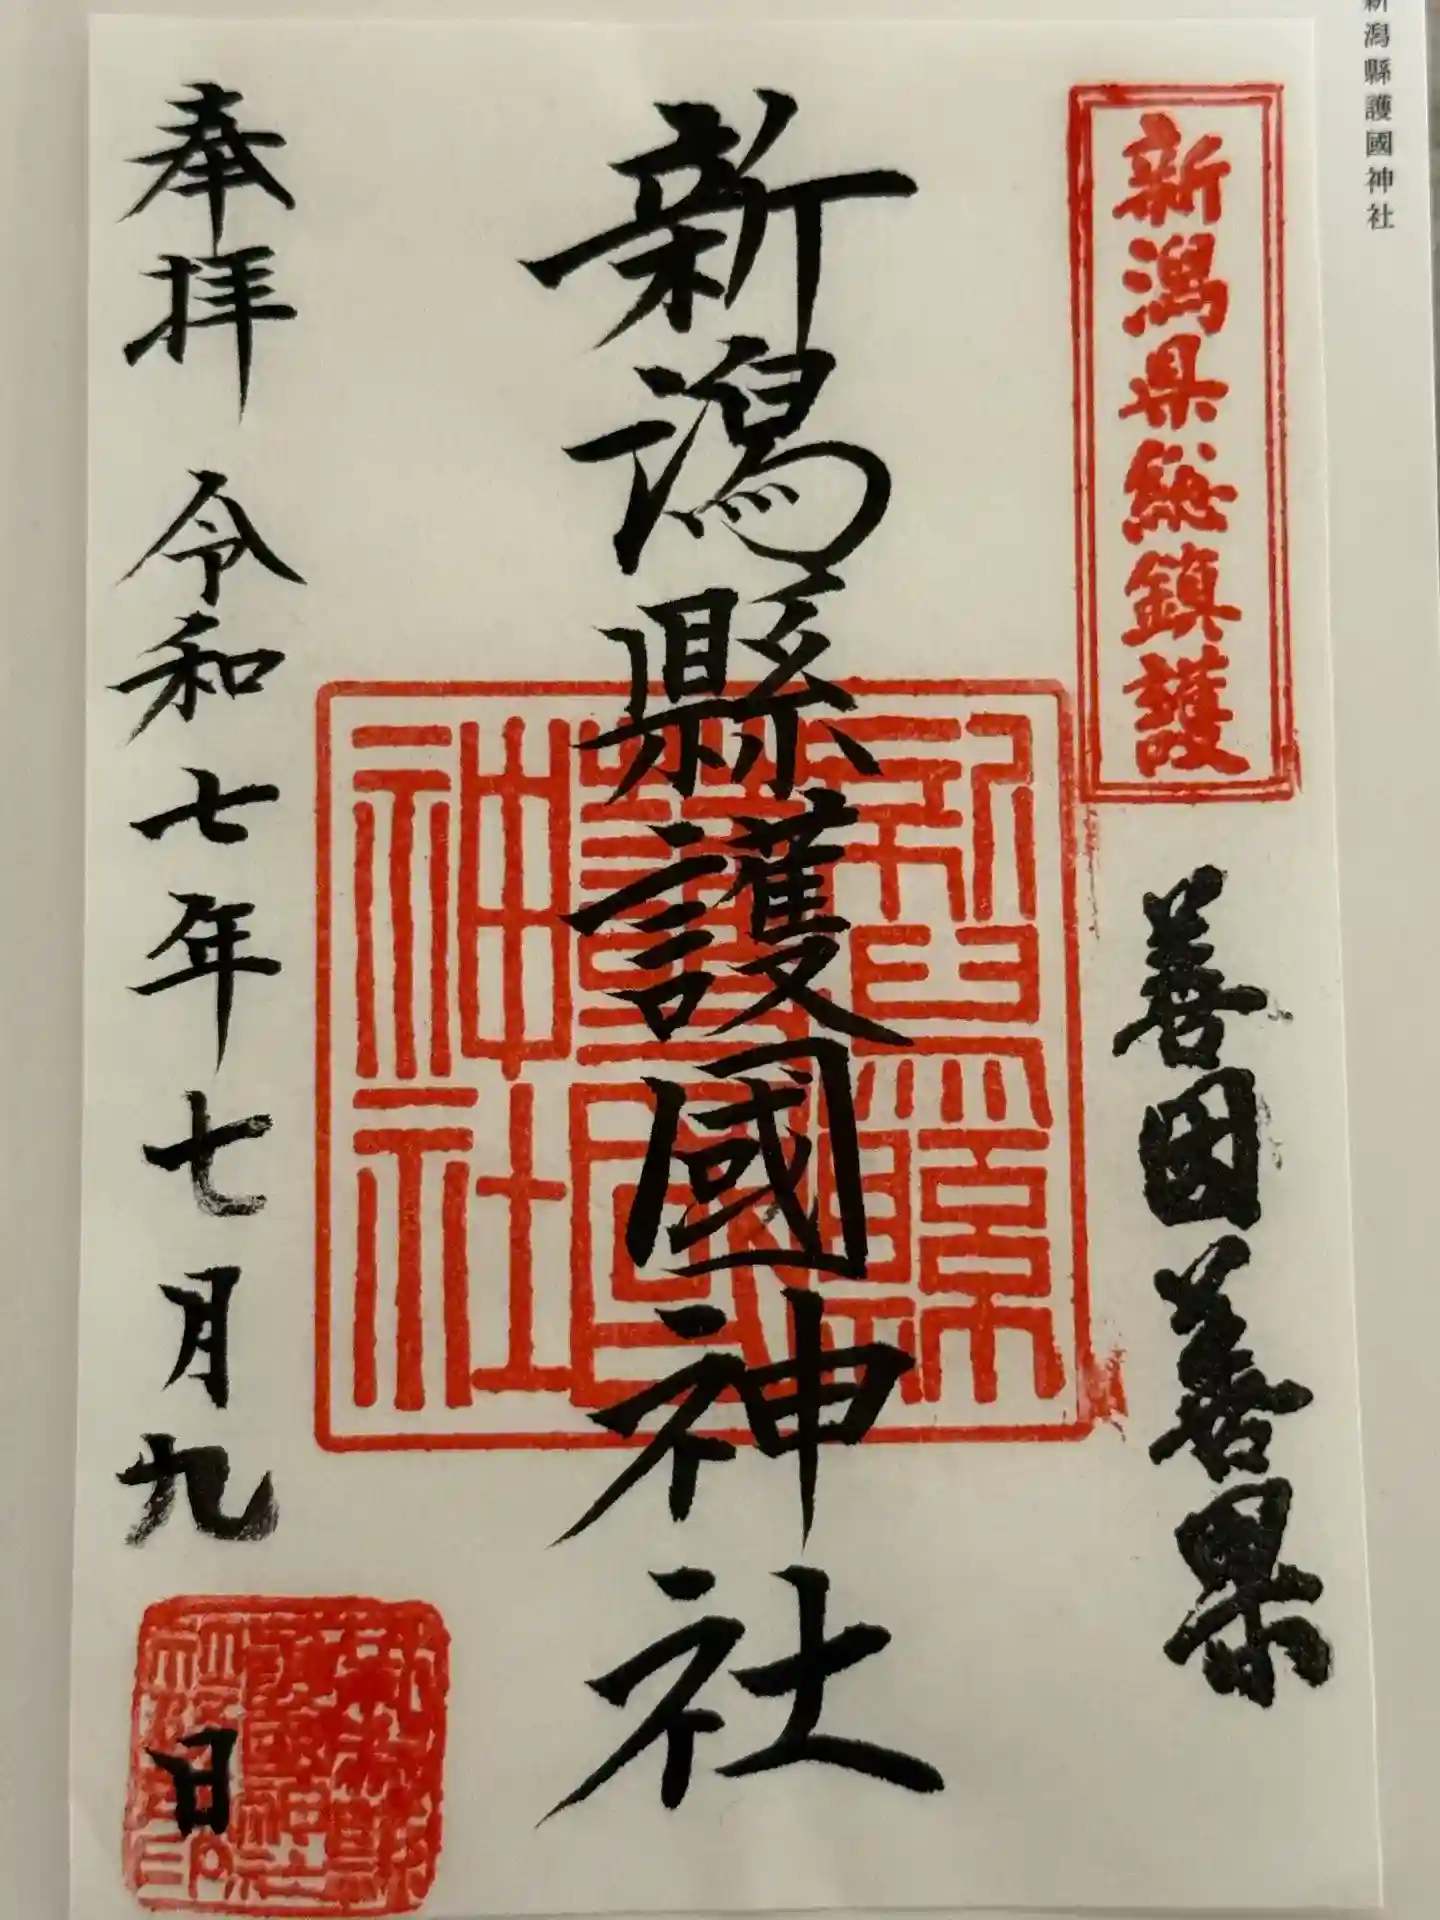 新潟縣護國神社
新潟県総鎮護
善因善果
新潟縣護國神社
新潟縣護國神社
奉拝 令和七年七月九日